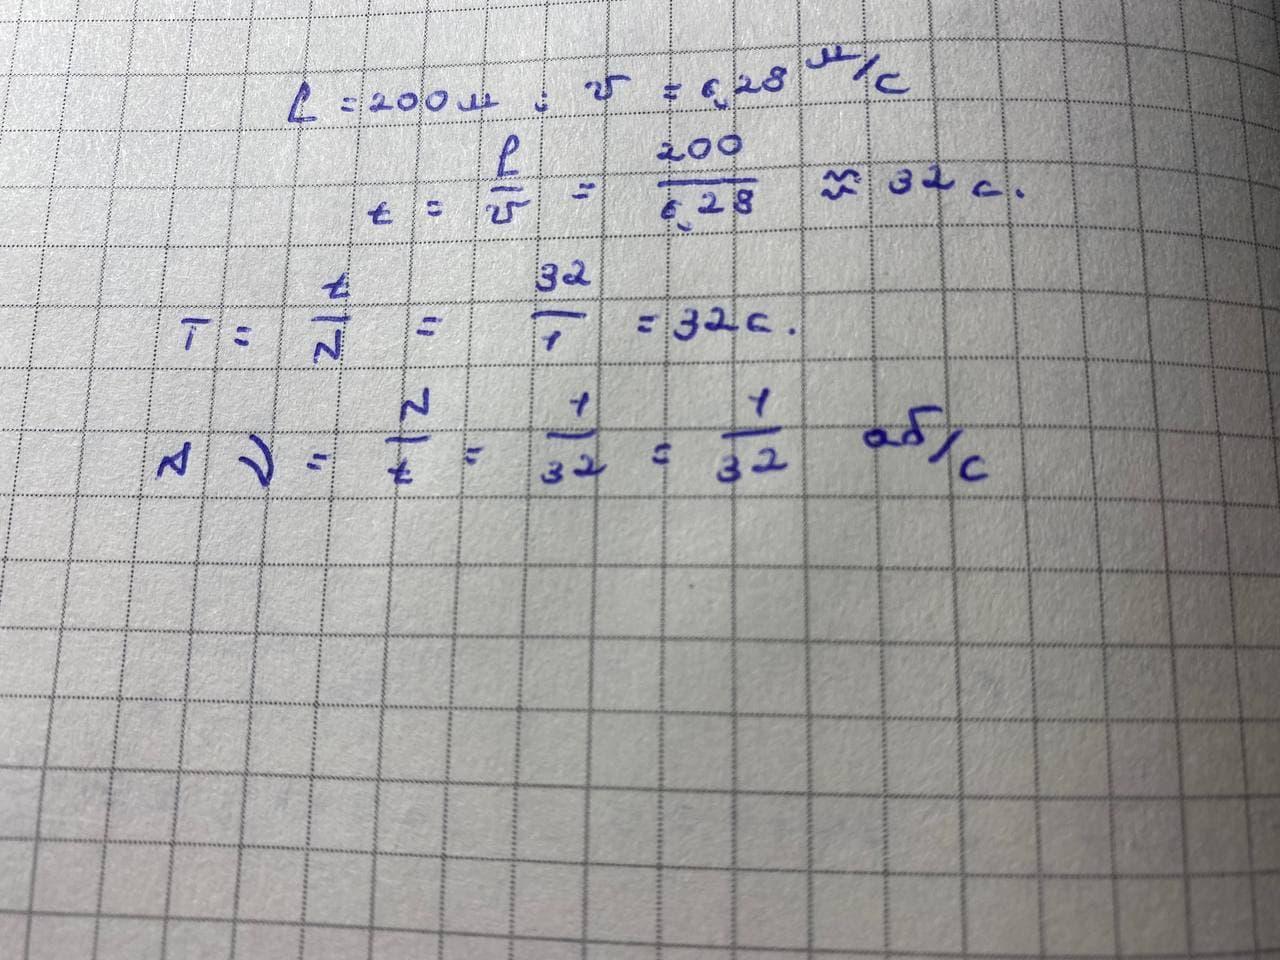 ℓ = 200 м ; v = 6,28 м/с
t = ℓ/v = 200/6,28 ≈ 32 с.
T = t/N = 32/1 = 32 с.
ν = N/t = 1/32 = 1/32 об/с